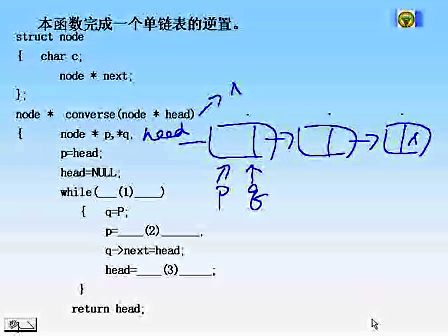 本函数完成一个单链表的逆置。
struct node
{ char c;
node * next;
};
node * converse(node * head)
{ node * p,*q,
p=head;
head=NULL;
while(___(1)____)
{ q=P;
p=____(2)______,
q->next=head;
head=____(3)_____;
}
return head;
head
∧
∧
p q